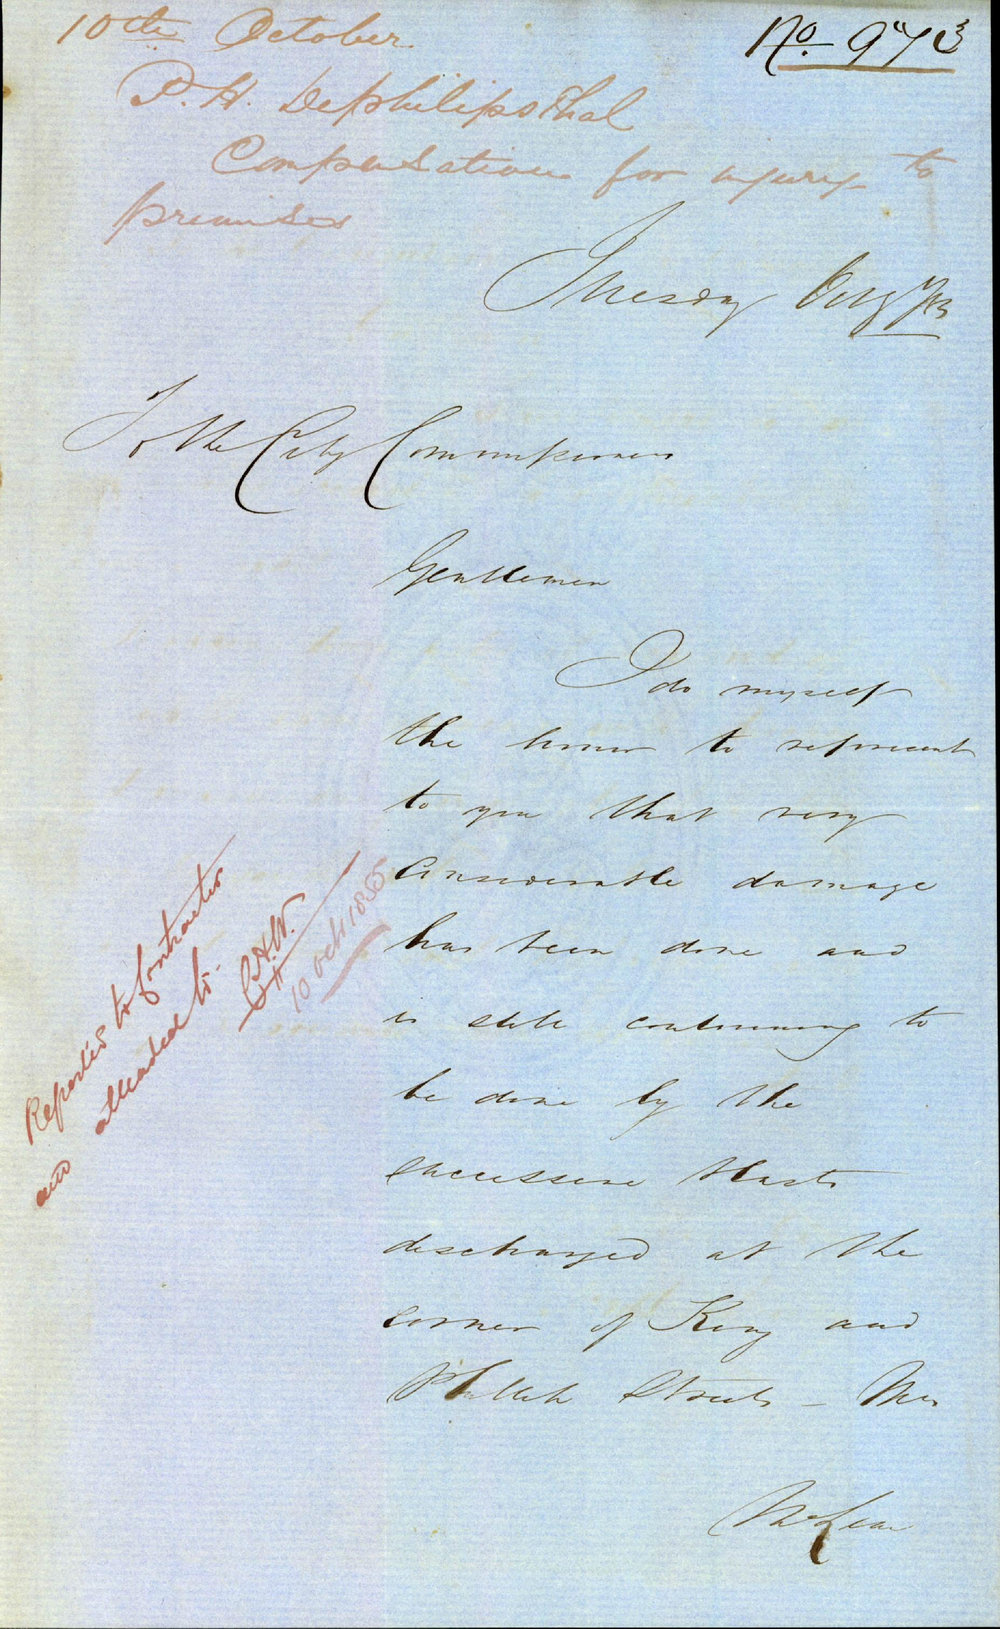 10th October
No. 973
P. H. Dephilipsthal
Compensation for injury to
premises
Tuesday Octr 9/
To the City Commissioners
Gentlemen
I do myself
the honor to represent
to you that very
considerable damage
has been done and
is still continuing to
be done by the
successive blasts
discharged at the
corner of King and
Phillip Streets – Mr
McLean
Reported to Contractor
and attended to.
10 Oct 1855